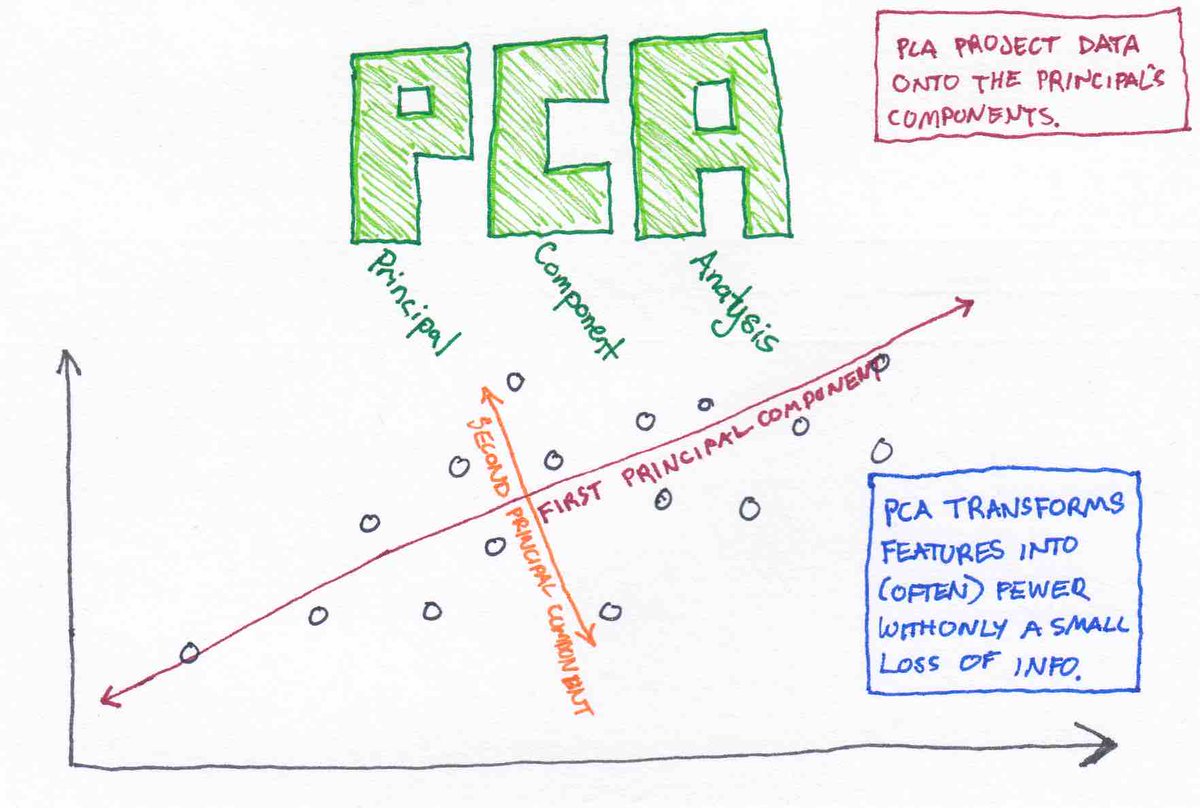 PCA
Principal
Component
Analysis
PCA PROJECT DATA
ONTO THE PRINCIPAL'S
COMPONENTS.
SECOND PRINCIPAL COMPONENT
FIRST PRINCIPAL COMPONENT
PCA TRANSFORMS
FEATURES INTO
(OFTEN) FEWER
WITH ONLY A SMALL
LOSS OF INFO.